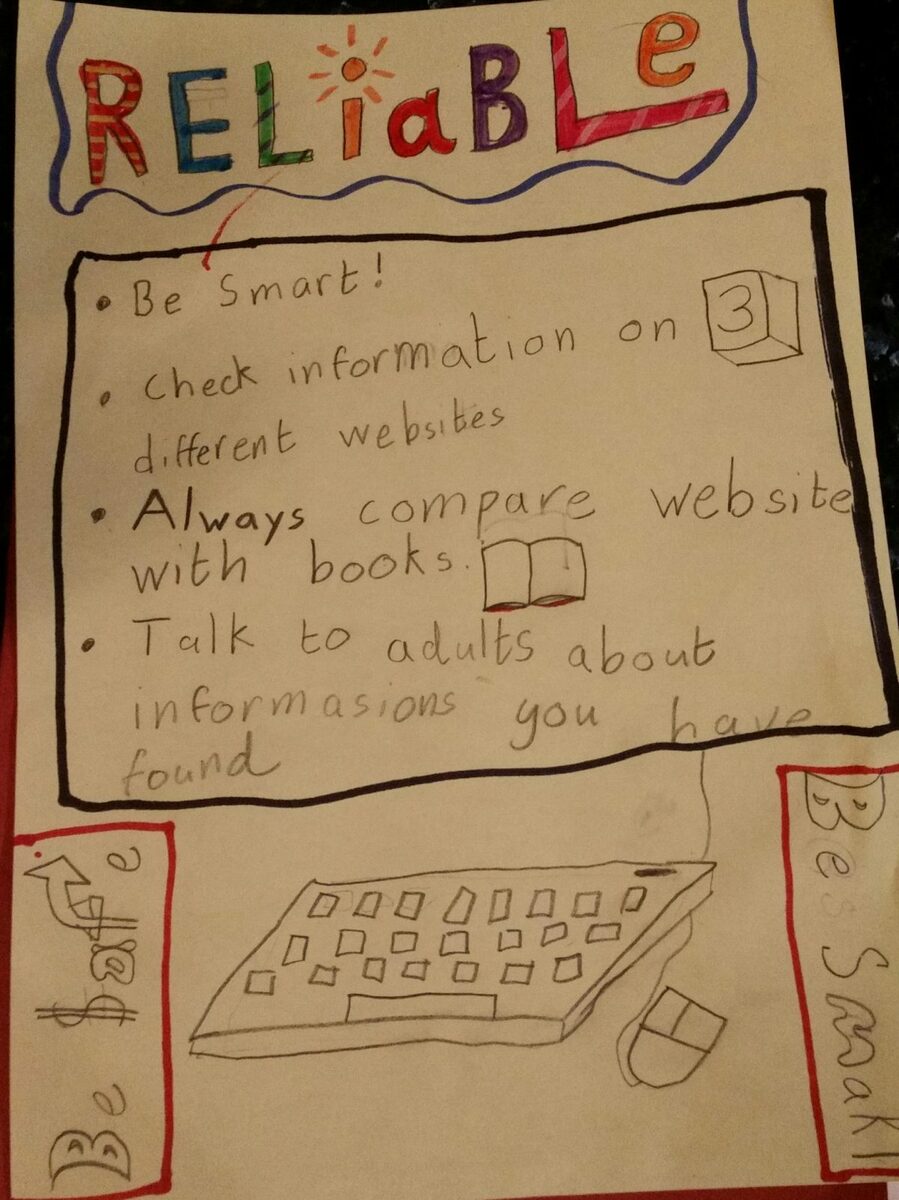 RELiaBLe
• Be Smart!
• Check information on 3
different websites
• Always compare website
with books.
• Talk to adults about
informasions you have
found
Be $@fe
Be Smart